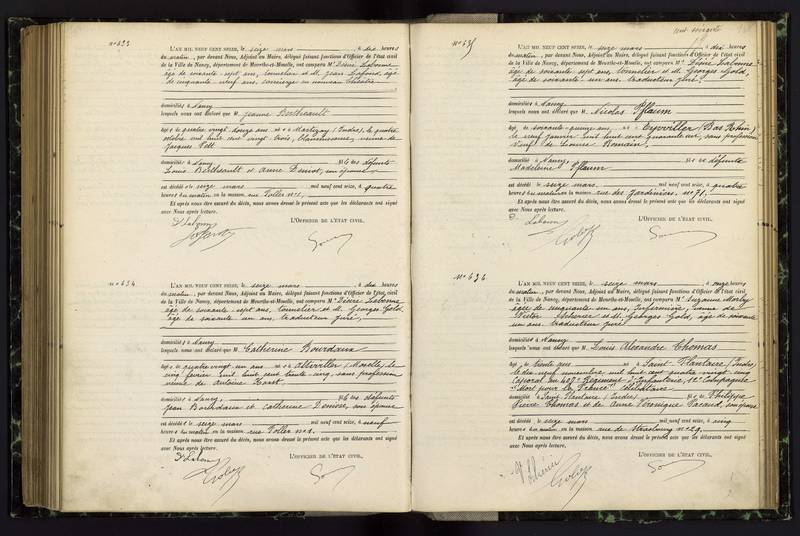 n° 633
L'AN MIL NEUF CENT SEIZE, le seize mars, à dix heures
du matin, par devant Nous, Adjoint au Maire, délégué faisant fonctions d'Officier de l'état civil
de la Ville de Nancy, département de Meurthe-et-Moselle, ont comparu M. Désiré Labonne
âgé de soixante-sept ans, tonnelier et M. Jean Lafond, âgé
de cinquante neuf ans, concierge au nouveau théâtre
domiciliés à Nancy
lesquels nous ont déclaré que M. Jeanne Bertheault
âgée de quatre vingt douze ans, née à Martizay (Indre), le quatre
octobre mil huit cent vingt trois, veuve de
Jacques
domiciliée à Nancy, fille des défunts
Louis Bertheault et Anne son épouse
est décédée le seize mars mil neuf cent seize, à quatre
heures du matin en la maison rue Toller n° 1.
Et après nous être assuré du décès, nous avons dressé le présent acte que les déclarants ont signé
avec Nous après lecture.
L'OFFICIER DE L'ÉTAT CIVIL,
n° 634.
L'AN MIL NEUF CENT SEIZE, le seize mars, à dix heures
du matin, par devant Nous, Adjoint au Maire, délégué faisant fonctions d'Officier de l'état civil
de la Ville de Nancy, département de Meurthe-et-Moselle, ont comparu M. Désiré Labonne
âgé de soixante-sept ans, tonnelier et M. Georges Gold,
âgé de soixante un ans, traducteur juré,
domiciliés à Nancy
lesquels nous ont déclaré que M. Catherine Bourdaux
âgée de quatre vingt un ans, née à Alteviller (Moselle), le
cinq février mil huit cent trente-cinq, sans profession
veuve de Antoine
domiciliée à Nancy, fille des défunts
Jean Bourdaux et Catherine son épouse
est décédée le seize mars mil neuf cent seize, à neuf
heures du matin en la maison rue Toller n° 1.
Et après nous être assuré du décès, nous avons dressé le présent acte que les déclarants ont signé
avec Nous après lecture.
L'OFFICIER DE L'ÉTAT CIVIL,
n° 635
L'AN MIL NEUF CENT SEIZE, le seize mars, à dix heures
du matin, par devant Nous, Adjoint au Maire, délégué faisant fonctions d'Officier de l'état civil
de la Ville de Nancy, département de Meurthe-et-Moselle, ont comparu M. Désiré Labonne
âgé de soixante sept ans, tonnelier et M. Georges Gold,
âgé de soixante un ans, traducteur juré,
domiciliés à Nancy
lesquels nous ont déclaré que M. Nicolas Pflaum
âgé de soixante-quinze ans, né à (Bas Rhin)
le neuf mil huit cent quarante un, sans profession
veuf de Romain.
domicilié à Nancy, fils de défunte
Madeleine Pflaum
est décédé le seize mars mil neuf cent seize, à quatre
heures du matin en la maison rue des Jardiniers n° 71.
Et après nous être assuré du décès, nous avons dressé le présent acte que les déclarants ont signé
avec Nous après lecture.
L'OFFICIER DE L'ÉTAT CIVIL,
n° 636
L'AN MIL NEUF CENT SEIZE, le seize mars, à onze heures
du matin, par devant Nous, Adjoint au Maire, délégué faisant fonctions d'Officier de l'état civil
de la Ville de Nancy, département de Meurthe-et-Moselle, ont comparu M. Suzanne Morby
âgée de cinquante un ans, Infirmière, veuve de
Victor et M. Georges Gold, âgé de soixante
un ans traducteur juré
domiciliés à Nancy
lesquels nous ont déclaré que M. Louis Alexandre Thomas
âgé de trente ans né à Saint Plantaire (Indre)
le dix-neuf novembre mil huit cent quatre vingt cinq
Caporal au 409e Régiment d'Infanterie, 12e Compagnie
"Mort pour la France" célibataire
domicilié à Saint Plantaire (Indre) fils de Philippe
Pierre Thomas et de Anne Véronique son épouse
est décédé le seize mars mil neuf cent seize, à cinq
heures du matin en la maison rue de Strasbourg n° 29
Et après nous être assuré du décès, nous avons dressé le présent acte que les déclarants ont signé
avec Nous après lecture.
L'OFFICIER DE L'ÉTAT CIVIL,